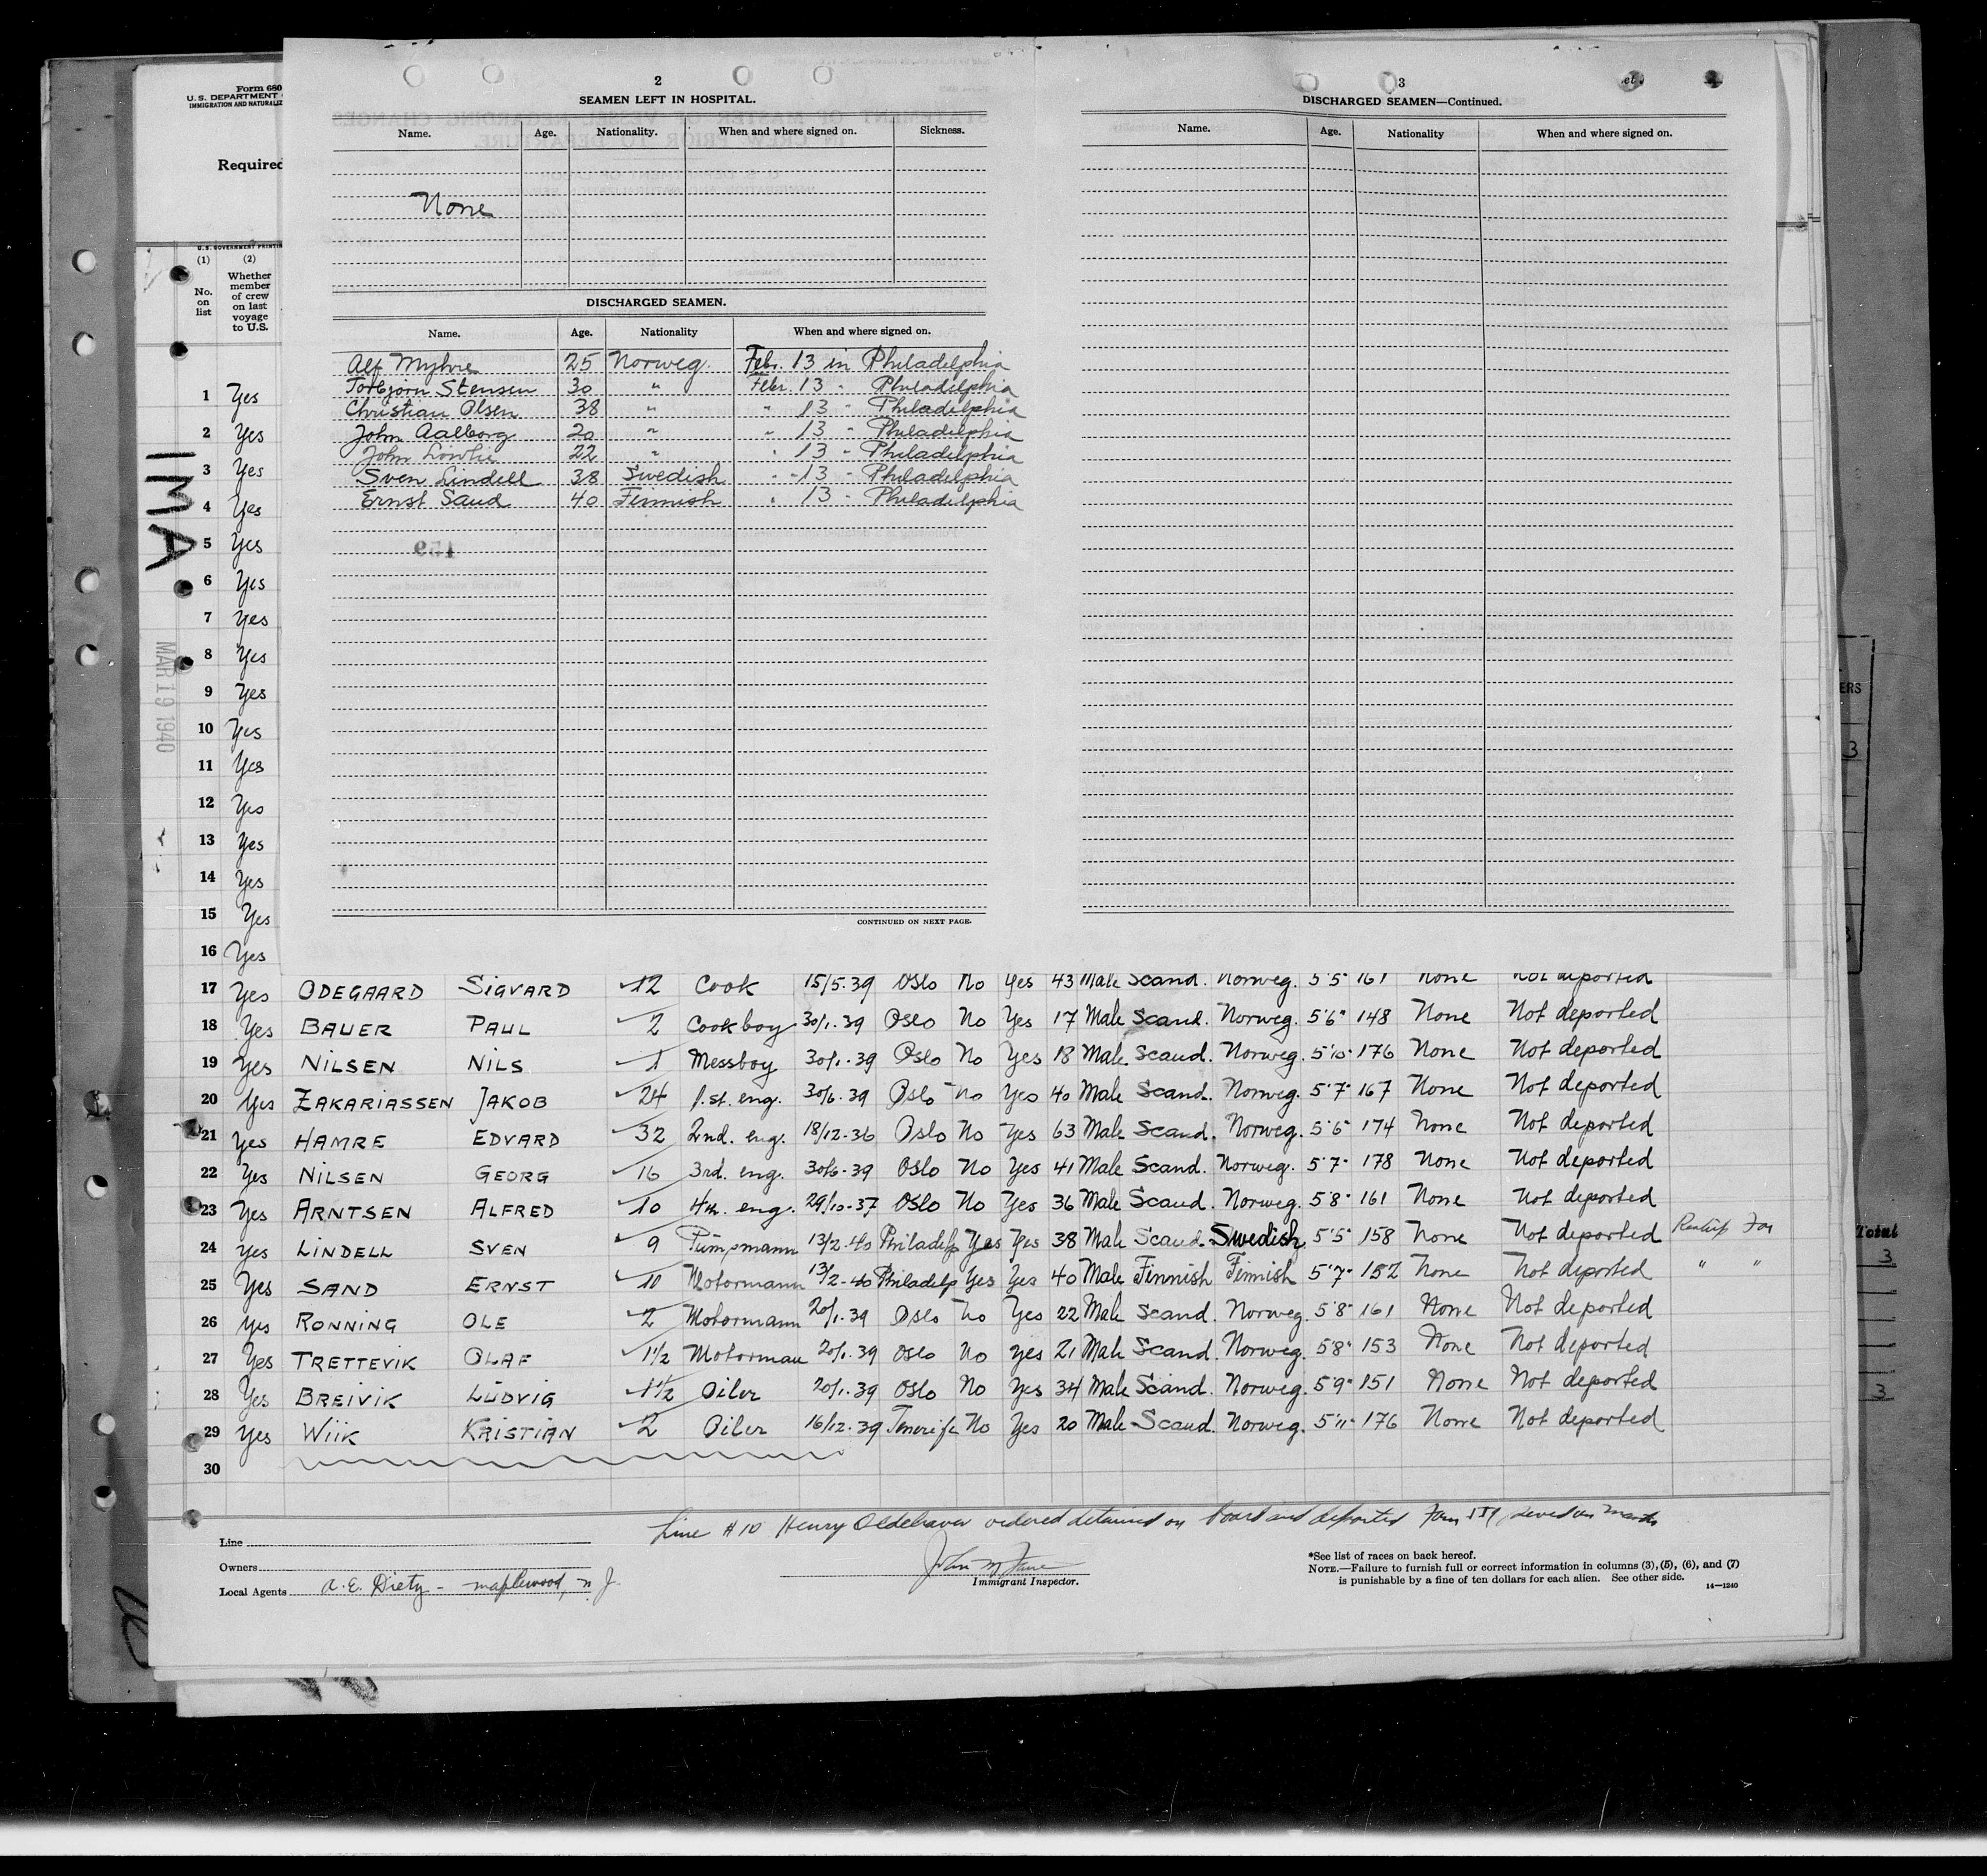 Form 680
U. S. DEPARTMENT
IMMIGRATION AND NATURALIZ
Required
U. S. GOVERNMENT PRINTIN
(1) (2)
No. on list
Whether member of crew on last voyage to U.S.
2
SEAMEN LEFT IN HOSPITAL.
Name. Age. Nationality. When and where signed on. Sickness.
None
DISCHARGED SEAMEN.
Name. Age. Nationality When and where signed on.
Alf Myhre 25 Norweg. Febr. 13 in Philadelphia
Torbjorn Stensen 30 " Febr. 13 - Philadelphia
Christian Olsen 38 " " 13 - Philadelphia
John Aalborg 20 " " 13 - Philadelphia
John 22 " " 13 - Philadelphia
Sven Lindell 38 Swedish " 13 - Philadelphia
Ernst Sand 40 Finnish " 13 - Philadelphia
159
CONTINUED ON NEXT PAGE.
3
DISCHARGED SEAMEN—Continued.
Name. Age. Nationality When and where signed on.
IMA
MAR 19 1940
1 Yes
2 Yes
3 Yes
4 Yes
5 Yes
6 Yes
7 Yes
8 Yes
9 Yes
10 Yes
11 Yes
12 Yes
13 Yes
14 Yes
15 Yes
16 Yes
17 Yes ODEGAARD SIGVARD 12 Cook 15/5-39 Oslo No Yes 43 Male Scand. Norweg. 5'5" 161 None Not deported
18 Yes BAUER PAUL 2 Cookboy 30/1-39 Oslo No Yes 17 Male Scand. Norweg. 5'6" 148 None Not deported
19 Yes NILSEN NILS 1 Messboy 30/1-39 Oslo No Yes 18 Male Scand. Norweg. 5'10" 176 None Not deported
20 Yes ZAKARIASSEN JAKOB 24 1.st. eng. 30/6-39 Oslo No Yes 40 Male Scand. Norweg. 5'7" 167 None Not deported
21 Yes HAMRE EDVARD 32 2nd. eng. 18/12-36 Oslo No Yes 63 Male Scand. Norweg. 5'6" 174 None Not deported
22 Yes NILSEN GEORG 16 3rd. eng. 30/6-39 Oslo No Yes 41 Male Scand. Norweg. 5'7" 178 None Not deported
23 Yes ARNTSEN ALFRED 10 4th. eng. 29/10-37 Oslo No Yes 36 Male Scand. Norweg. 5'8" 161 None Not deported
24 Yes LINDELL SVEN 9 Pumpmann 13/2-40 Philadelp Yes Yes 38 Male Scand. Swedish 5'5" 158 None Not deported
25 Yes SAND ERNST 10 Motormann 13/2-40 Philadelp Yes Yes 40 Male Finnish Finnish 5'7" 152 None Not deported " "
26 Yes RONNING OLE 2 Motormann 20/1-39 Oslo No Yes 22 Male Scand. Norweg. 5'8" 161 None Not deported
27 Yes TRETTEVIK OLAF 1½ Motorman 20/1-39 Oslo No Yes 21 Male Scand. Norweg. 5'8" 153 None Not deported
28 Yes BREIVIK LUDVIG 1½ Oiler 20/1-39 Oslo No Yes 34 Male Scand. Norweg. 5'9" 151 None Not deported
29 Yes WIIK KRISTIAN 2 Oiler 16/12-39 Tenerife No Yes 20 Male Scand. Norweg. 5'11" 176 None Not deported
30
Line #10 Henry ordered detained on board and deported Form served on
Line
Owners
Local Agents A. E. Diety - Maplewood, N. J.
Immigrant Inspector.
*See list of races on back hereof.
NOTE.—Failure to furnish full or correct information in columns (3), (5), (6), and (7)
is punishable by a fine of ten dollars for each alien. See other side.
14—1240
ERS
3
Total
3
3